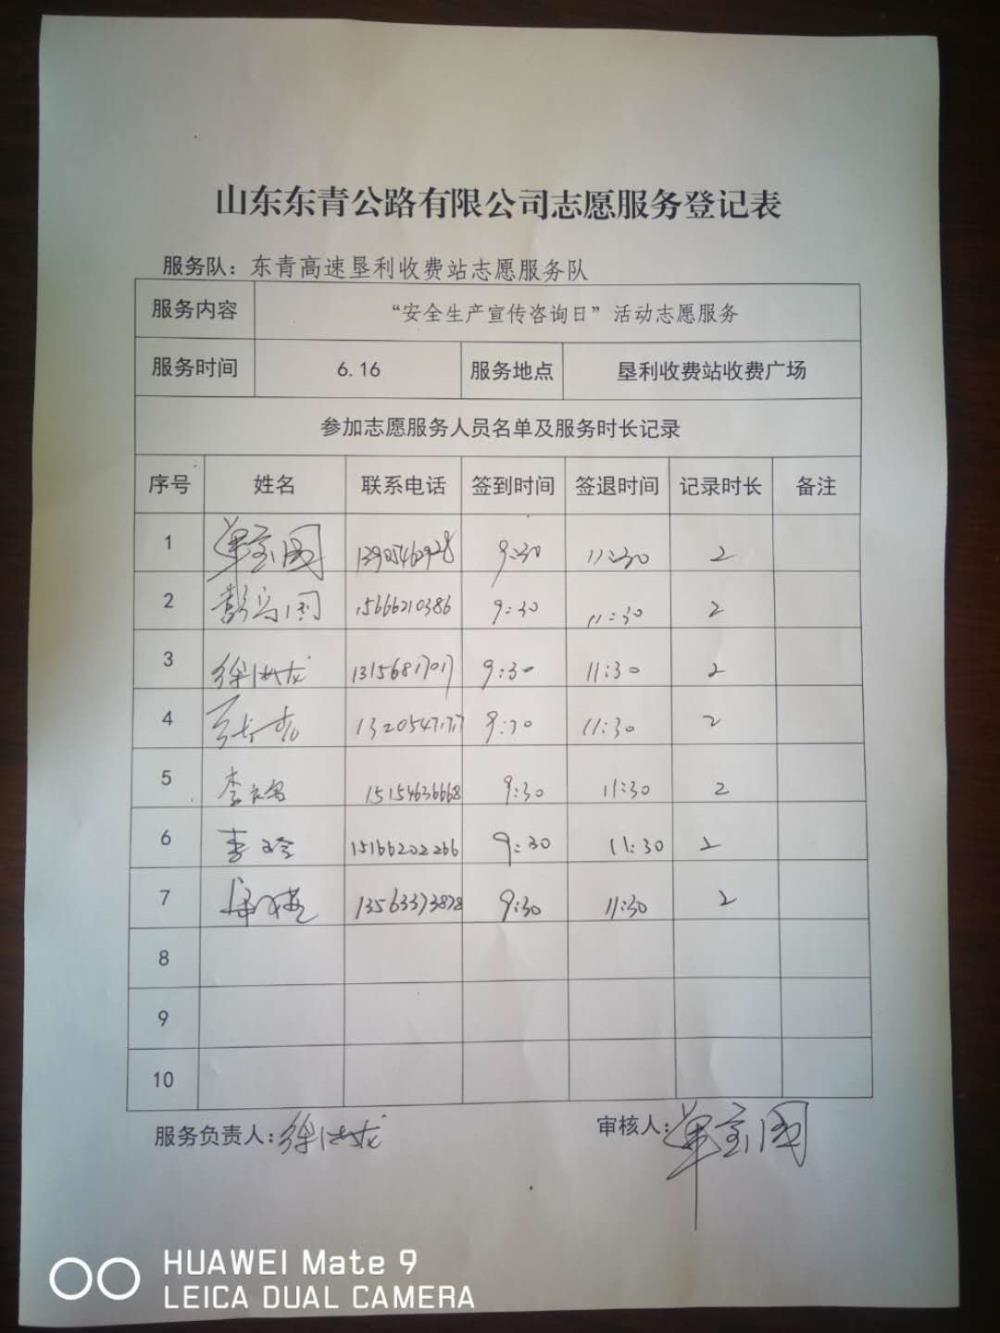 山东东青公路有限公司志愿服务登记表
服务队：东青高速垦利收费站志愿服务队
服务内容 “安全生产宣传咨询日”活动志愿服务
服务时间 6.16 服务地点 垦利收费站收费广场
参加志愿服务人员名单及服务时长记录
序号 姓名 联系电话 签到时间 签退时间 记录时长 备注
1 单宝国 9:30 11:30 2
2 15666210386 9:30 11:30 2
3 徐洪龙 13156817017 9:30 11:30 2
4 9:30 11:30 2
5 15154636668 9:30 11:30 2
6 李玲 15166202266 9:30 11:30 2
7 13563373878 9:30 11:30 2
8
9
10
服务负责人：徐洪龙 审核人：单宝国
HUAWEI Mate 9
LEICA DUAL CAMERA